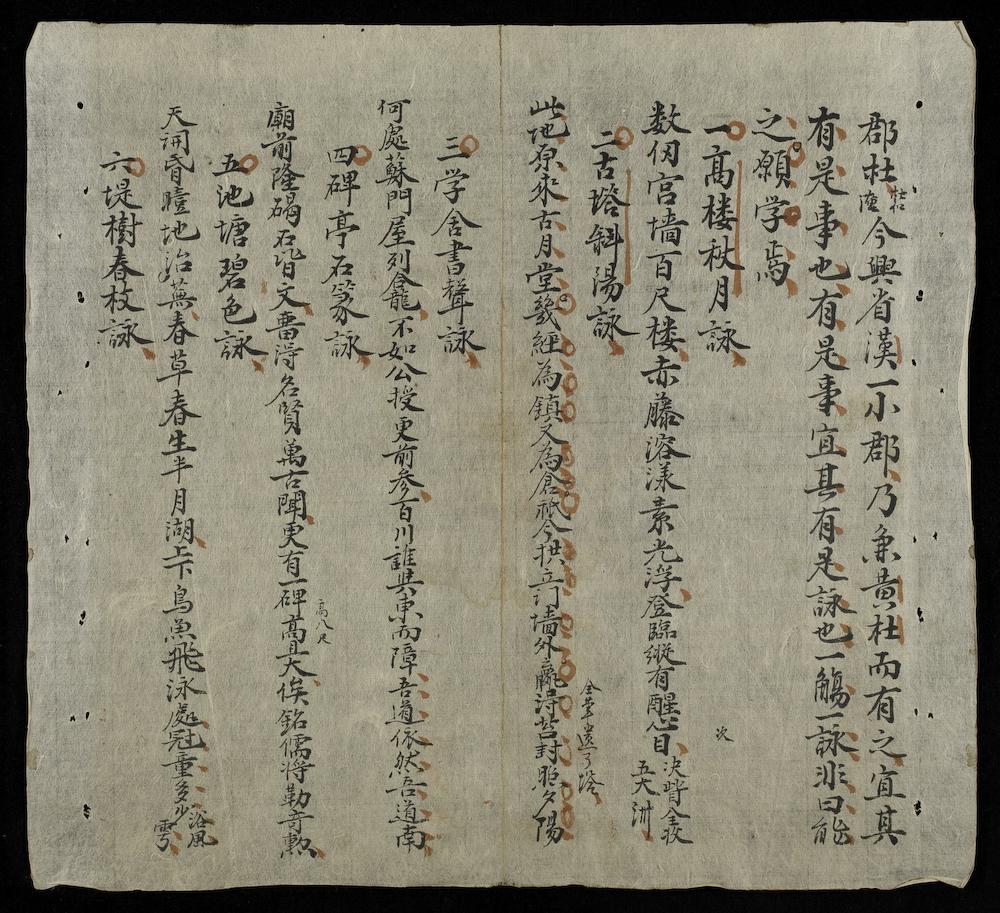 郡杜牡陵今興省漢一小郡乃兼黄杜而有之宜其
有是事也有是事宜其有是詠也一觴一詠非曰能
之願学焉
一高楼秋月詠
数仞宮墙百尺楼赤藤溶漾素光浮登臨縱有醒心目决眥全收五大洲
次
二古塔斜陽詠
全筆遺了塔
此地原来古月堂幾經為鎮又為倉祇今拱立门墙外羸得苔封照夕陽
三学舍書聲詠
何處蘇門屋列龕不如公授更前参百川誰與東而障吾道依然吾道南
四碑亭石篆詠
高八尺
廟前隆碣石皆文嗇得名賢萬古聞更有一碑高且大俟銘儒將勒竒勲
五池塘碧色詠
天開昏曀地始蕪春草春生半月湖上下鳥魚飛泳處冠童多少浴風雩
六堤樹春枚詠